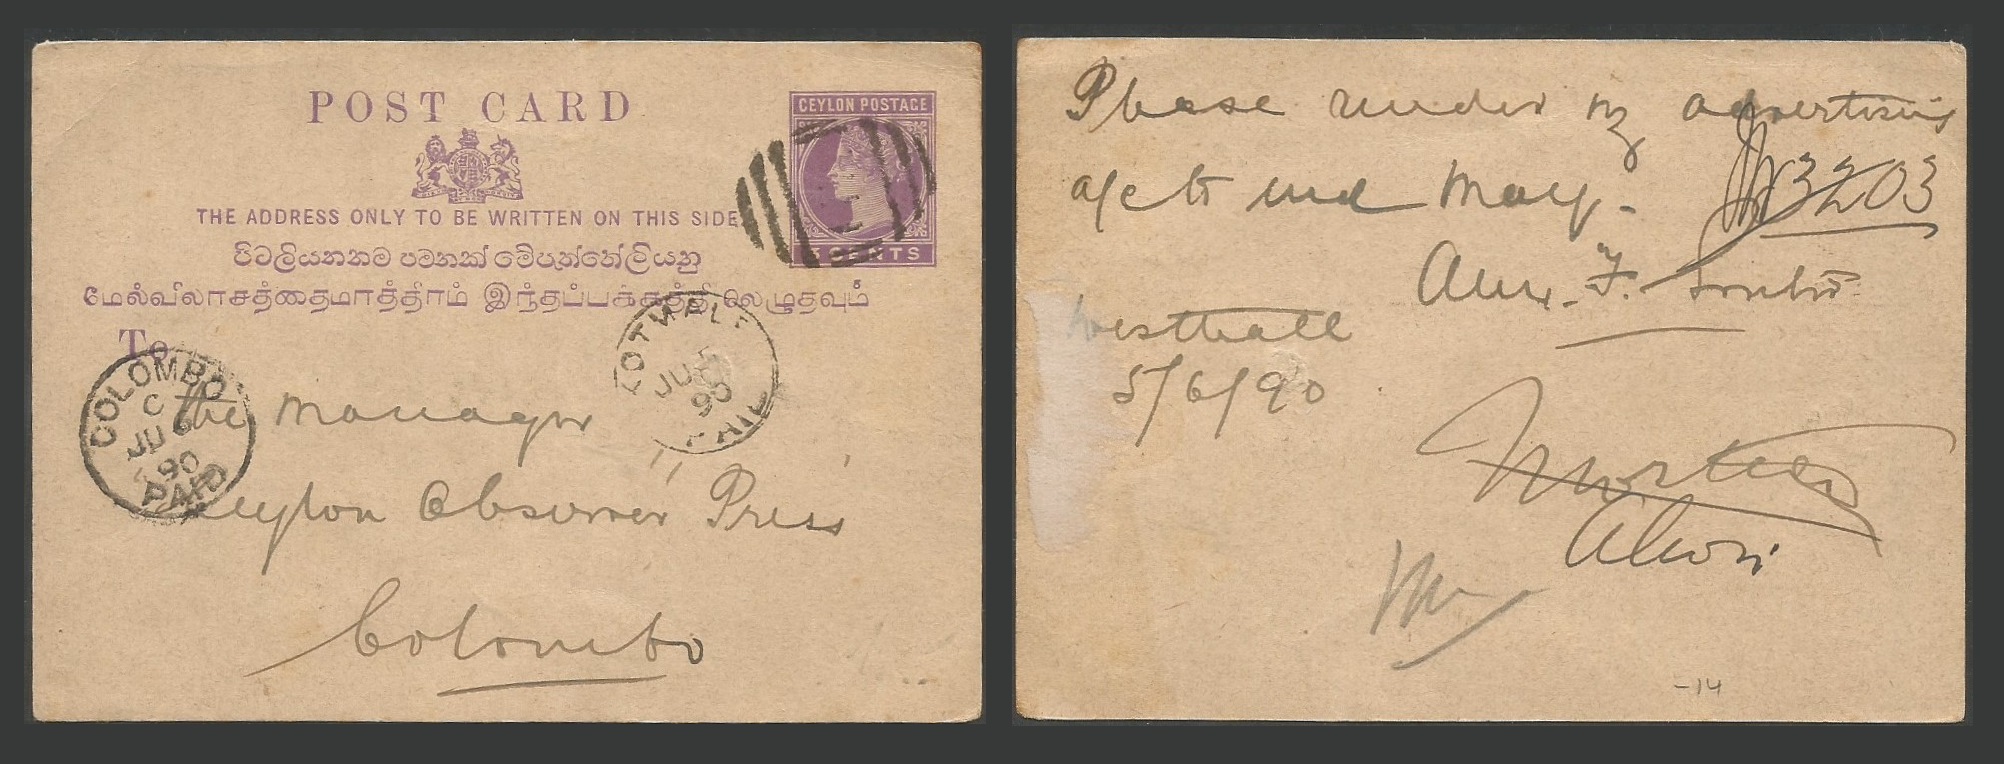 POST CARD
CEYLON POSTAGE
THE ADDRESS ONLY TO BE WRITTEN ON THIS SIDE
පිටලියනනම පමනක් මේපැත්තේලියනු
மேல்விலாசத்தைமாத்திரம் இந்தப்பக்கத்திலெழுதவும்
CENTS
To
COLOMBO
C
JU 6
90
PAID
JU 5
90
PAID
The Manager
"Ceylon Observer Press"
Colombo
Please render my advertising
a/c to end May.
3203
Alex. F.
Westhall
5/6/90
-14